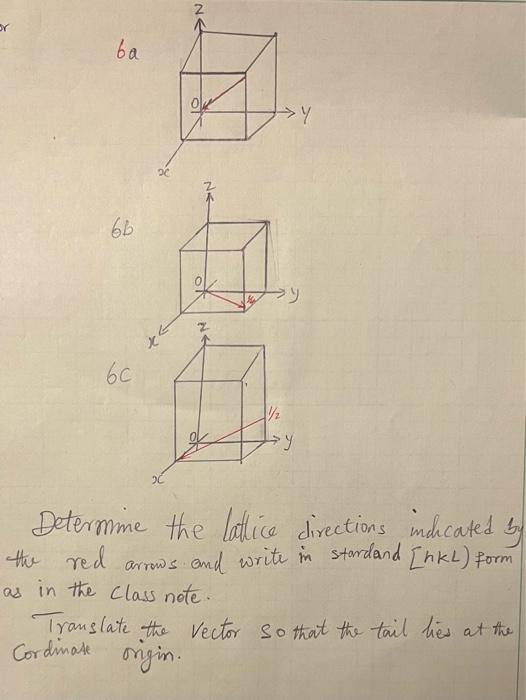 or
z
6a
O
y
x
z
6b
O
y
x
z
6c
1/2
O
y
x
Determine the lattice directions indicated by
the red arrows and write in standard [hkL) form
as in the class note.
Translate the vector so that the tail lies at the
Cordinate origin.